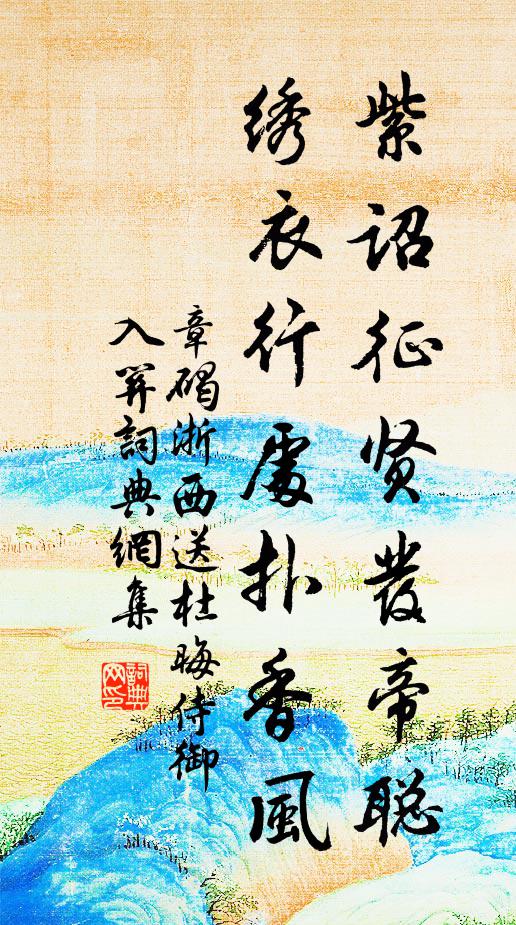 紫詔征贤發帝聪
绣衣行處扑香風
章碣浙西送杜晦侍御入关詞典網集
詞典网印